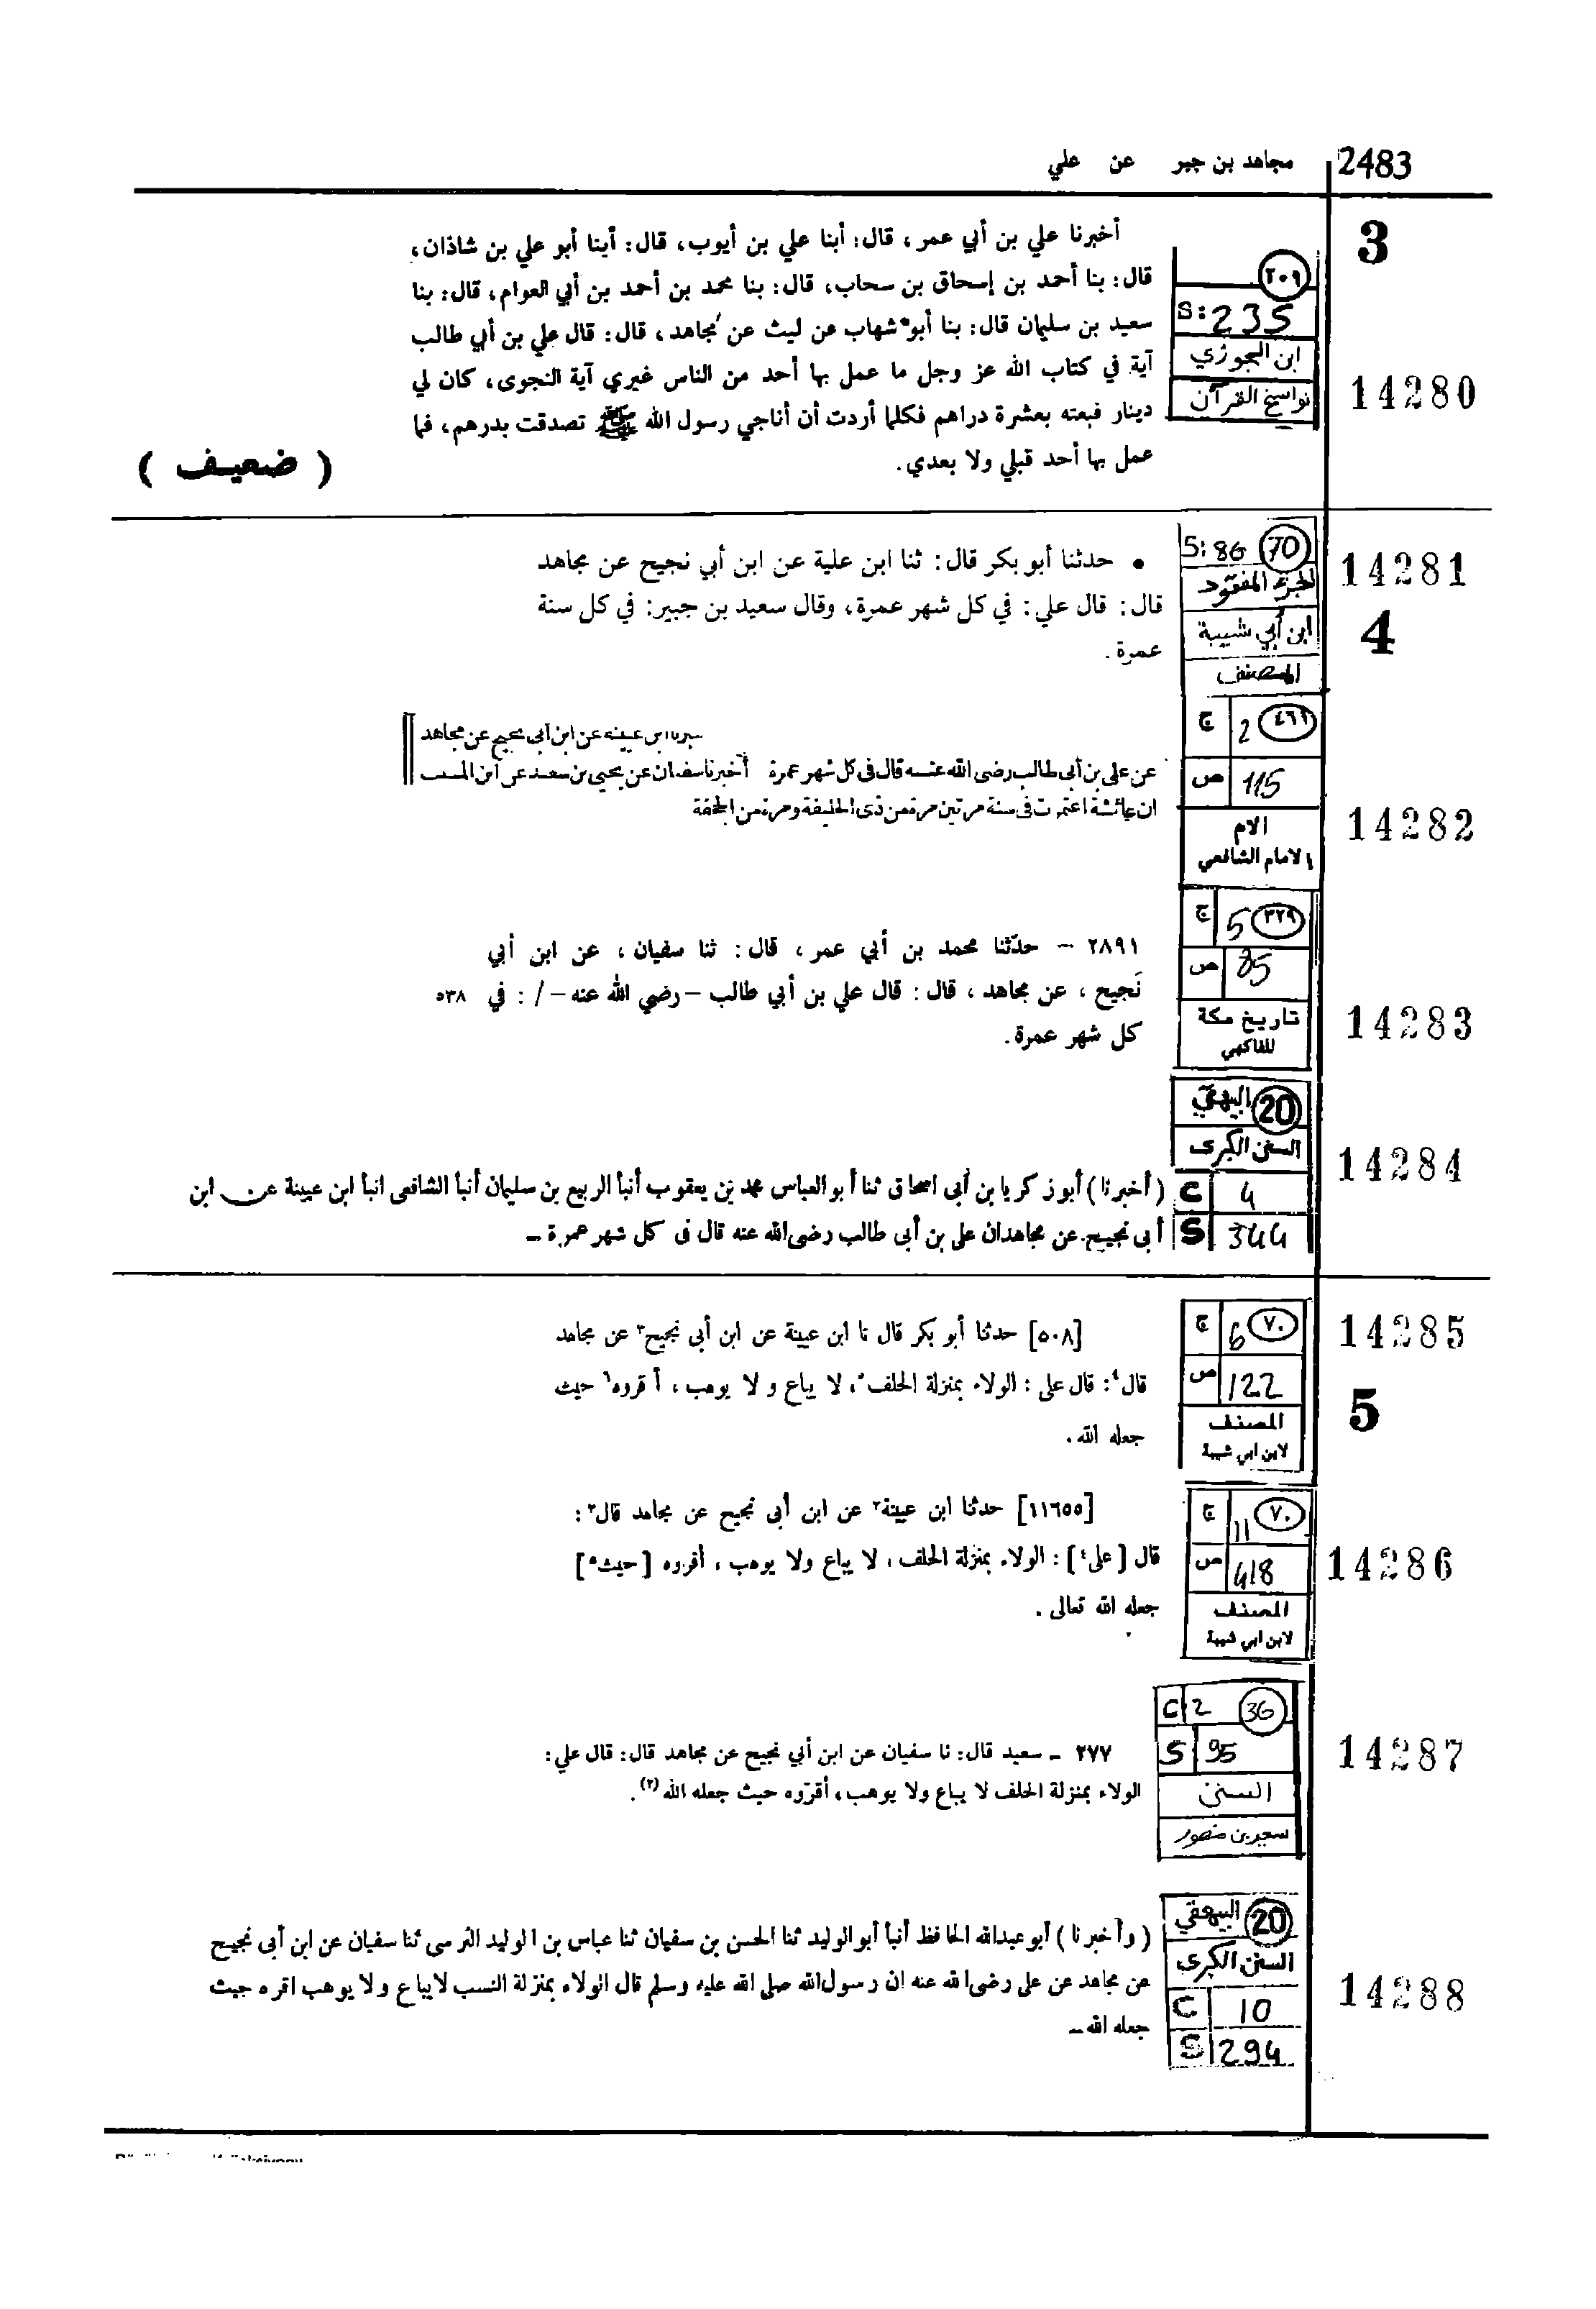 2483 مجاهد بن جبر عن علي
3
أخبرنا علي بن أبي عمر، قال: أبنا علي بن أيوب، قال: أبنا أبو علي بن شاذان،
قال: بنا أحمد بن إسحاق بن سحاب، قال: بنا محمد بن أحمد بن أبي العوام، قال: بنا
سعيد بن سليمان قال: بنا أبو شهاب عن ليث عن مجاهد، قال: قال علي بن أبي طالب
آية في كتاب الله عز وجل ما عمل بها أحد من الناس غيري آية النجوى، كان لي
دينار فبعته بعشرة دراهم فكلما أردت أن أناجي رسول الله ﷺ تصدقت بدرهم، فما
عمل بها أحد قبلي ولا بعدي.
( ضعيف )
٢٠٩
S: 235
ابن الجوزي
نواسخ القرآن
14280
14281
4
S: 86 70
الجزء المفقود
ابن أبي شيبة
المصنف
• حدثنا أبو بكر قال: ثنا ابن علية عن ابن أبي نجيح عن مجاهد
قال: قال علي: في كل شهر عمرة، وقال سعيد بن جبير: في كل سنة
عمرة.
ج 2 ٤٦٦
ص 115
الام
الامام الشافعي
14282
ابن عيينه عن ابن أبى نجيح عن مجاهد
عن على بن أبى طالب رضى الله عنه قال فى كل شهر عمرة أخبرنا سفيان عن يحيى بن سعيد عن ابن المسيب
ان عائشة اعتمرت فى سنة مرتين مرة من ذى الحليفة ومرة من الجحفة
ج 5 ٣٢٩
ص 85
تاريخ مكة
للفاكهي
14283
٢٨٩١ – حدّثنا محمد بن أبي عمر، قال: ثنا سفيان، عن ابن أبي
نَجيح، عن مجاهد، قال: قال علي بن أبي طالب – رضي الله عنه – /: في ٥٣٨
كل شهر عمرة.
البيهقي 20
السنن الكبرى
C 4
S 344
14284
( أخبرنا ) أبو زكريا بن أبى اسحاق ثنا أبو العباس محمد بن يعقوب أنبأ الربيع بن سليمان أنبأ الشافعى انبأ ابن عيينة عن ابن
أبى نجيح عن مجاهد ان على بن أبى طالب رضى الله عنه قال فى كل شهر عمرة –
ج 6 ٧٠
ص 122
المصنف
لابن ابي شيبة
14285
5
[٥٠٨] حدثنا أبو بكر قال نا ابن عيينة عن ابن أبى نجيح٣ عن مجاهد
قال٤: قال على: الولاء بمنزلة الحلف٥، لا يباع و لا يوهب، أقروه٦ حيث
جعله الله.
ج 11 ٧٠
ص 418
المصنف
لابن ابي شيبة
14286
[١١٦٥٥] حدثنا ابن عيينة٢ عن ابن أبى نجيح عن مجاهد قال٣:
قال [على٤]: الولاء بمنزلة الحلف، لا يباع ولا يوهب، أقروه [حيث٥]
جعله الله تعالى.
C 2 36
S 95
السنن
سعيد بن منصور
14287
٢٧٧ – سعيد قال: نا سفيان عن ابن أبي نجيح عن مجاهد قال: قال علي:
الولاء بمنزلة الحلف لا يباع ولا يوهب، أقرّوه حيث جعله الله(٢).
البيهقي 20
السنن الكبرى
C 10
S 294
14288
( وأخبرنا ) أبو عبدالله الحافظ أنبأ أبو الوليد ثنا الحسن بن سفيان ثنا عباس بن الوليد النرسى ثنا سفيان عن ابن أبى نجيح
عن مجاهد عن على رضى الله عنه ان رسول الله صلى الله عليه وسلم قال الولاء بمنزلة النسب لايباع ولا يوهب اقره حيث
جعله الله –